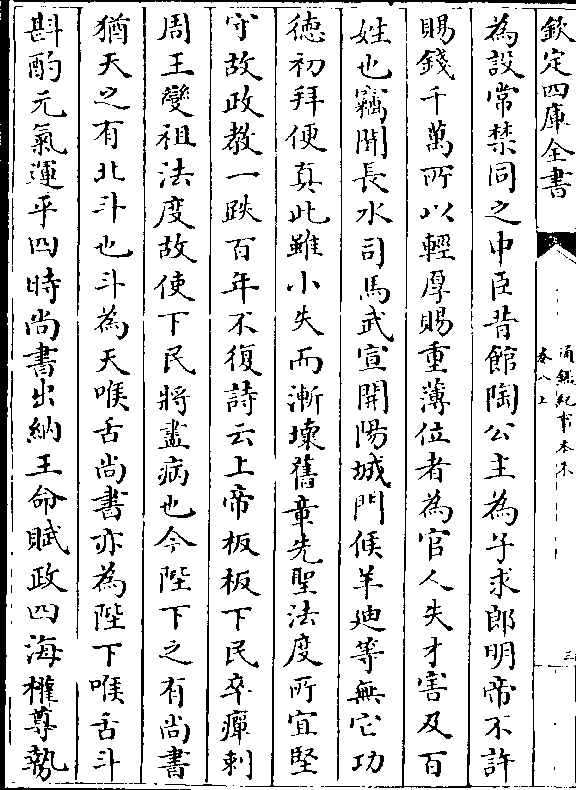 欽定四庫全書
通鑑紀事本末
卷八上
三
為設常禁同之中臣昔館陶公主為子求郎明帝不許
賜錢千萬所以輕厚賜重薄位者為官人失才害及百
姓也竊聞長水司馬武宣開陽城門候羊廸等無它功
徳初拜便真此雖小失而漸壊舊章先聖法度所宜堅
守故政教一跌百年不復詩云上帝板板下民卒癉刺
周王變祖法度故使下民將盡病也今陛下之有尚書
猶天之有北斗也斗為天喉舌尚書亦為陛下喉舌斗
斟酌元氣運平四時尚書出納王命賦政四海權尊勢